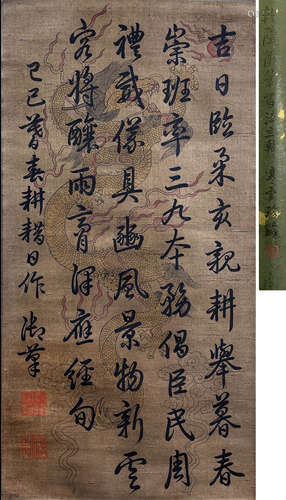 吉日臨柔亥親耕舉暮春
崇班率三九本務倡臣民周
禮咸儀具豳風景物新雲
容將釀雨膏澤應經旬
己巳暮春耕耤日作 御筆